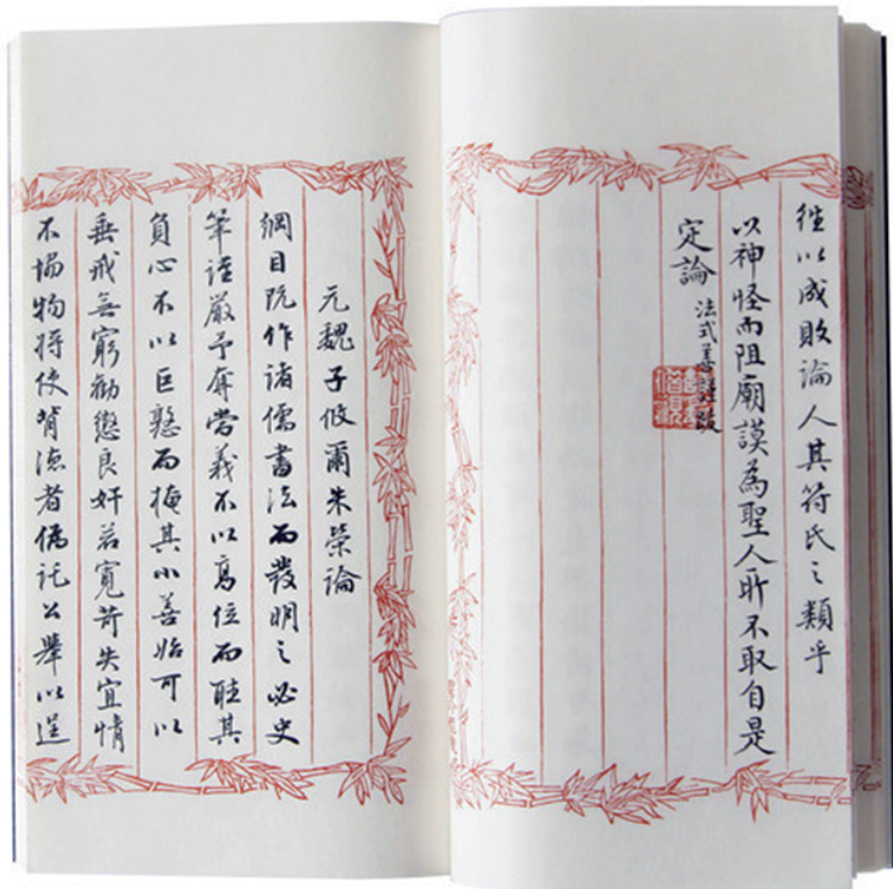 徃以成敗論人其符氏之類乎
以神怪而阻廟謨為聖人所不取自是
定論
法式善謹跋
元魏子攸爾朱榮論
綱目既作諸儒書法而發明之必史
筆謹嚴予奪當義不以高位而駐其
負心不以巨憝而掩其小善始可以
垂戒無窮勸懲良奸若寬苛失宜情
不揣物將使背德者僞託公舉以逞